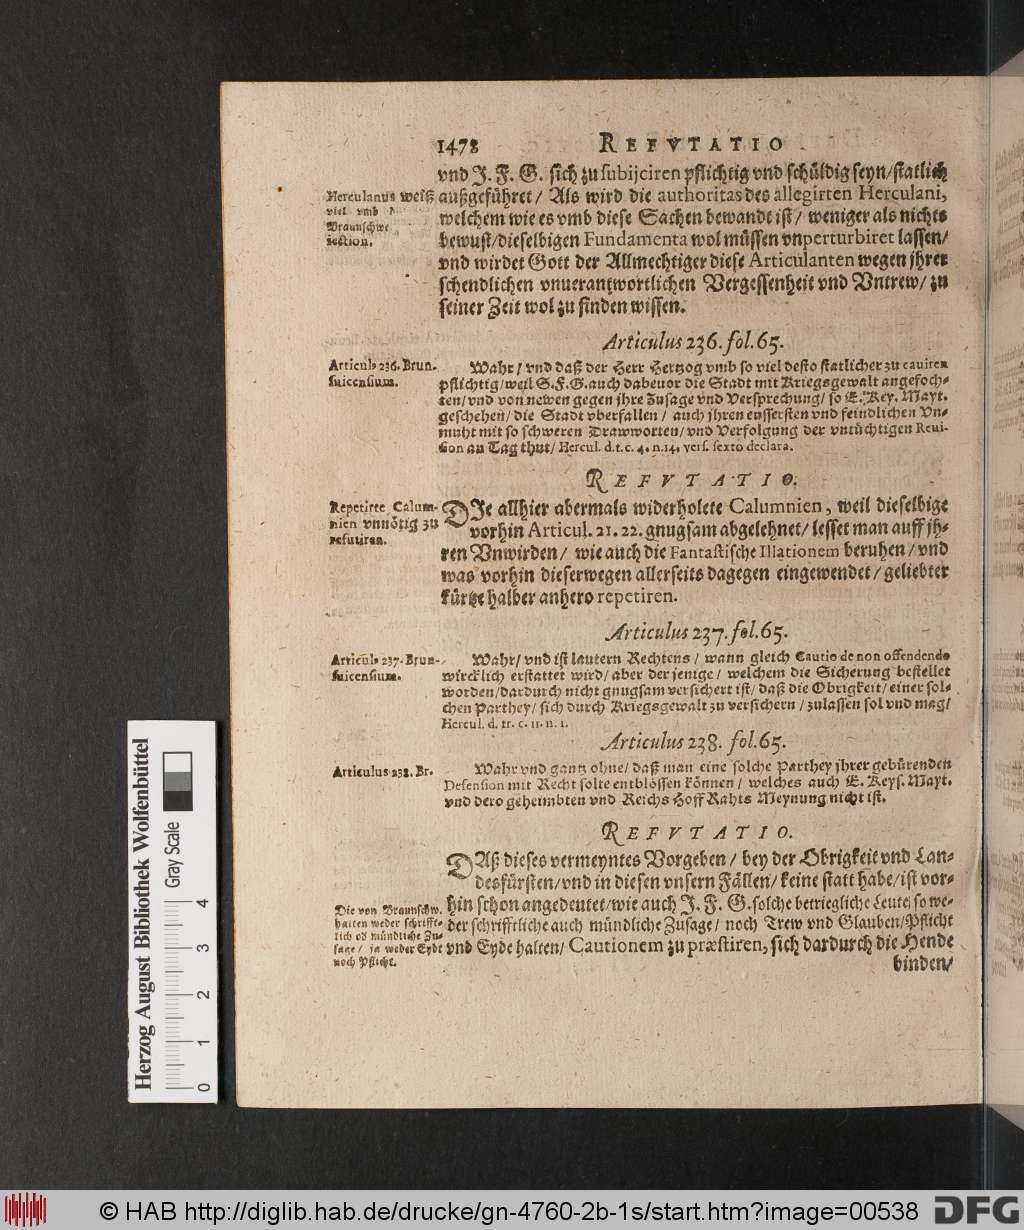 1478 REFVTATIO
vnd J. F. G. sich zu subijciren pflichtig vnd schüldig seyn/statlich
außgeführet/ Als wird die authoritas des allegirten Herculani,
welchem wie es vmb diese Sachen bewandt ist/ weniger als nichts
bewust/dieselbigen Fundamenta wol müssen vnperturbiret lassen/
vnd wirdet Gott der Allmechtiger diese Articulanten wegen jhrer
schendlichen vnuerantwortlichen Vergessenheit vnd Vntrew/ zu
seiner Zeit wol zu finden wissen.
Herculanus weiß
viel vmb
Braunschwe
iection.
Articulus 236. fol. 65.
Articul9 236. Brun-
suicensium.
Wahr/ vnd daß der Herr Hertzog vmb so viel desto statlicher zu caviren
pflichtig/weil S.F.G. auch dabeuor die Stadt mit Kriegsgewalt angefoch-
ten/ vnd von newen gegen jhre Zusage vnd Versprechung/ so E. Key. Mayt.
geschehen/ die Stadt vberfallen/ auch jhren eussersten vnd feindlichen Vn-
muht mit so schweren Drawworten/ vnd Verfolgung der vntüchtigen Reui-
sion an Tag thut/ Hercul. d. t. c. 4. n. 14. vers. sexto declara.
REFVTATIO.
Repetirte Calum-
nien vnnötig zu
refutiren.
DJe allhier abermals widerholete Calumnien, weil dieselbige
vorhin Articul. 21. 22. gnugsam abgelehnet/ lesset man auff jh-
ren Vnwirden/ wie auch die Fantastische Illationem beruhen/ vnd
was vorhin dieserwegen allerseits dagegen eingewendet/ geliebter
kürtze halber anhero repetiren.
Articulus 237. fol. 65.
Articul9 237. Brun-
suicensium.
Wahr/ vnd ist lautern Rechtens/ wann gleich Cautio de non offendendo
wircklich erstattet wird/ aber der jenige/ welchem die Sicherung bestellet
worden/dardurch nicht gnugsam versichert ist/ daß die Obrigkeit/ einer sol-
chen Parthey/ sich durch Kriegsgewalt zu versichern/ zulassen sol vnd mag/
Hercul. d. tr. c. 11. n. 1.
Articulus 238. fol. 65.
Articulus 238. Br.
Wahr vnd gantz ohne/ daß man eine solche Parthey jhrer gebürenden
Defension mit Recht solte entblössen können/ welches auch E. Keys. Mayt.
vnd dero geheimbten vnd Reichs Hoff Rahts Meynung nicht ist.
REFVTATIO.
DAß dieses vermeyntes Vorgeben/ bey der Obrigkeit vnd Lan-
desfürsten/ vnd in diesen vnsern Fällen/ keine statt habe/ ist vor-
hin schon angedeutet/ wie auch J. F. G. solche betriegliche Leute/ so we-
der schrifftliche auch mündliche Zusage/ noch Trew vnd Glauben/ Pflicht
vnd Eyde halten/ Cautionem zu præstiren, sich dardurch die Hende
binden/
Die von Braunschw.
halten weder schrifft-
lich od mündliche Zu-
sage/ ja weder Eydt
noch Pflicht.
Herzog August Bibliothek Wolfenbüttel
Gray Scale
0 1 2 3 4
© HAB http://diglib.hab.de/drucke/gn-4760-2b-1s/start.htm?image=00538
DFG